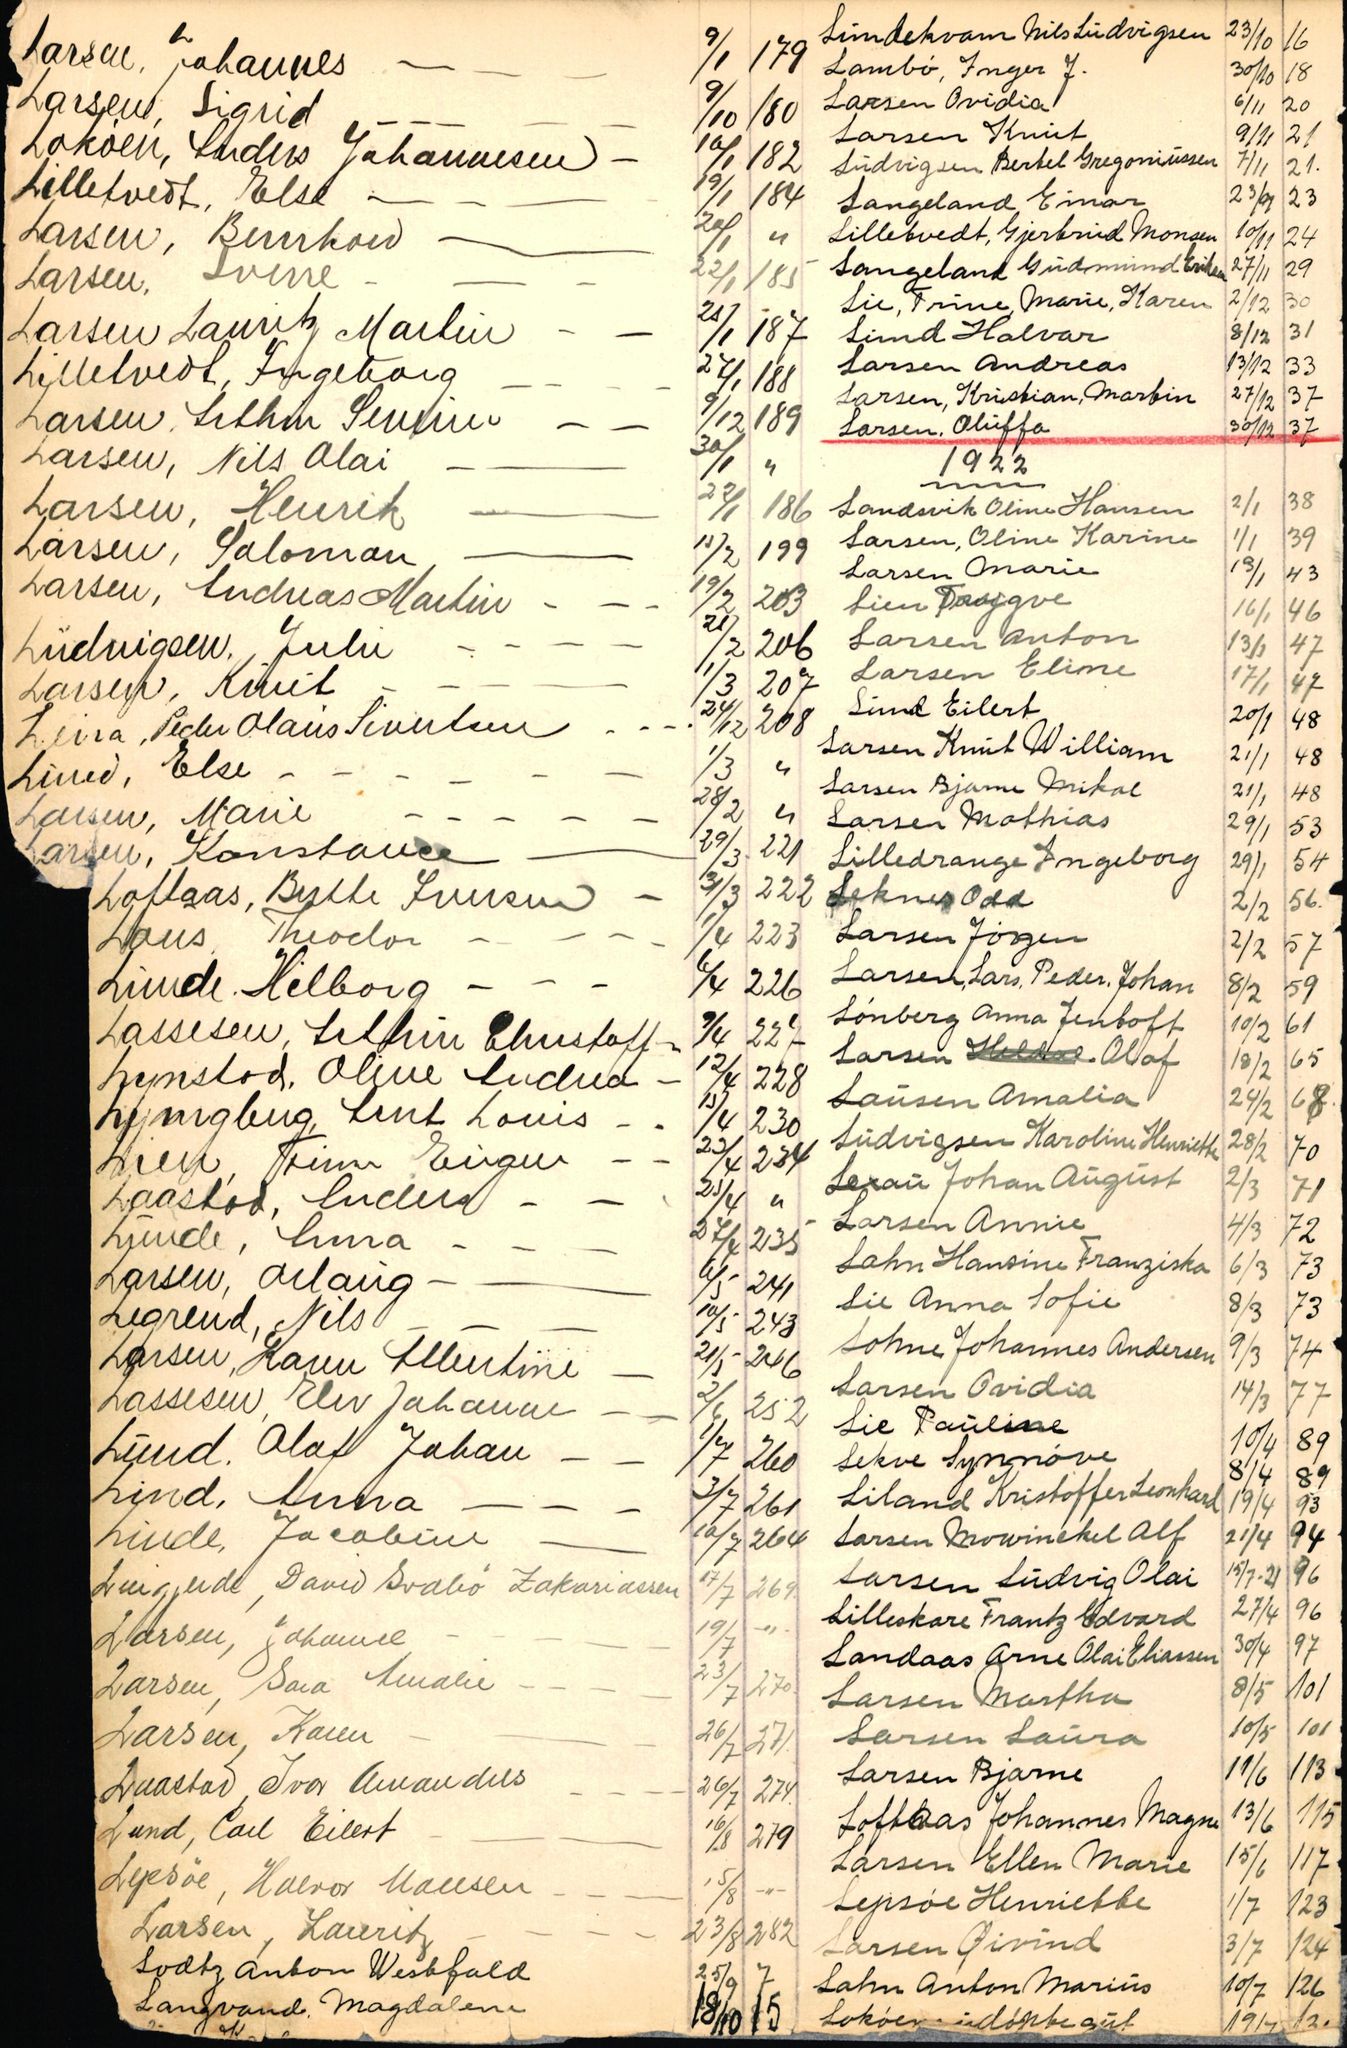 Larsen, Johannes — — — 9/1 179
Larsen, Sigrid 9/10 180
Loköen, Anders Johannesen — 10/1 182
Lilletvedt, Else — — — 19/1 184
Larsen, Bernhard — 20/1 "
Larsen, Sverre - — — 22/1 185
Larsen Lauritz Martin - — 25/1 187
Lilletvedt, Ingeborg 27/1 188
Larsen, Arthur Severin 9/12 189
Larsen, Nils Olai — — 30/1 "
Larsen, Henrik — 22/1 186
Larsen, Salomon — 15/2 199
Larsen, Andreas Martin - - - 19/2 203
Ludvigsen, Julie - - - - 21/2 206
Larsen, Knut - - — — 1/3 207
Leira, Peder Olaus Sivertsen 24/12 208
Lund, Else - - - - - - 1/3 "
Larsen, Marie - - - - - 28/2 "
Larsen, Konstance — 29/3 221
Loftaas, Bytte Iversen — 31/3 222
Laus, Theodor - - - - 1/4 223
Lunde, Hilborg - - - 6/4 226
Lassesen, Arthur Christoff - 9/4 227
Lynstod, Oline Andrea - 12/4 228
Ljungberg, Arnt Louis - - 15/4 230
Lien, Finn Eugen - - 23/4 234
Laastod, Anders - - 25/4 "
Lunde, Anna - - - 27/4 235
Larsen, Aslaug - — 6/5 241
Legrend, Nils — — — 10/5 243
Larsen, Karen Albertine — 21/5 246
Lassesen, Elen Johanne — — 2/6 252
Lund, Olaf Johan — — 1/7 260
Lind, Anna — — — 3/7 261
Linde, Jacobine — 10/7 264
David Svabö Zakariassen 17/7 269
Larsen, Johanne - 19/7 -"-
Larsen, Sara Amalie - - - - 23/7 270
Larsen, Karen - — 26/7 271
Laastad, Ivar Amandus 26/7 274
Lund, Carl Eilert - 16/8 279
Lepsöe, Halvor Monsen - - - - 15/8 -"-
Larsen, Lauritz - - - - 23/8 282
Lodtz Anton Westfald 25/9 7
Langvand, Magdalene 18/10 15
Lundekvam Nils Ludvigsen 23/10 16
Lambö, Inger J. 30/10 18
Larsen Ovidia 6/11 20
Larsen Knut 9/11 21
Ludvigsen Bertel Gregoniussen 7/11 21.
Langeland Einar 23/9 23
Lilletvedt, Gjertrud Monsen 10/11 24
Langeland Gudmund Eriksen 27/11 29
Lie, Trine, Marie, Karen 2/12 30
Lund Halvar 8/12 31
Larsen Andreas 13/12 33
Larsen, Kristian, Martin 27/12 37
Larsen, Oluffa 30/12 37
1922
Landsvik Oline Hansen 2/1 38
Larsen, Oline Karine 1/1 39
Larsen Marie 13/1 43
Lien Trygve 16/1 46
Larsen Anton 13/1 47
Larsen Eline 17/1 47
Lund Eilert 20/1 48
Larsen Knut William 21/1 48
Larsen Bjarne Mikal 21/1 48
Larsen Mathias 29/1 53
Lilledrange Ingeborg 29/1 54
Leknes Odd 2/2 56.
Larsen Jörgen 2/2 57
Larsen, Lars, Peder, Johan 8/2 59
Lönberg Anna Jentoft 10/2 61
Larsen Olaf 18/2 65
Lausen Amalia 24/2 68
Ludvigsen Karoline Henriette 28/2 70
Lexau Johan August 2/3 71
Larsen Annie 4/3 72
Lahn Hansine Franziska 6/3 73
Lie Anna Sofie 8/3 73
Lohne Johannes Andersen 9/3 74
Larsen Ovidia 14/3 77
Lie Pauline 10/4 89
Lekve Synnöve 8/4 89
Liland Kristoffer Leonhard 19/4 93
Larsen Mowinckel Alf 21/4 94
Larsen Ludvig Olai 15/7-21 96
Lilleskare Frantz Edvard 27/4 96
Landaas Arne Olai Eliassen 30/4 97
Larsen Martha 8/5 101
Larsen Laura 10/5 101
Larsen Bjarne 11/6 113
Loftaas Johannes Magne 13/6 115
Larsen Ellen Marie 15/6 117
Lepsöe Henriette 1/7 123
Larsen Öivind 3/7 124
Lahn Anton Marius 10/7 126
Loköen udöpte gut 19/7